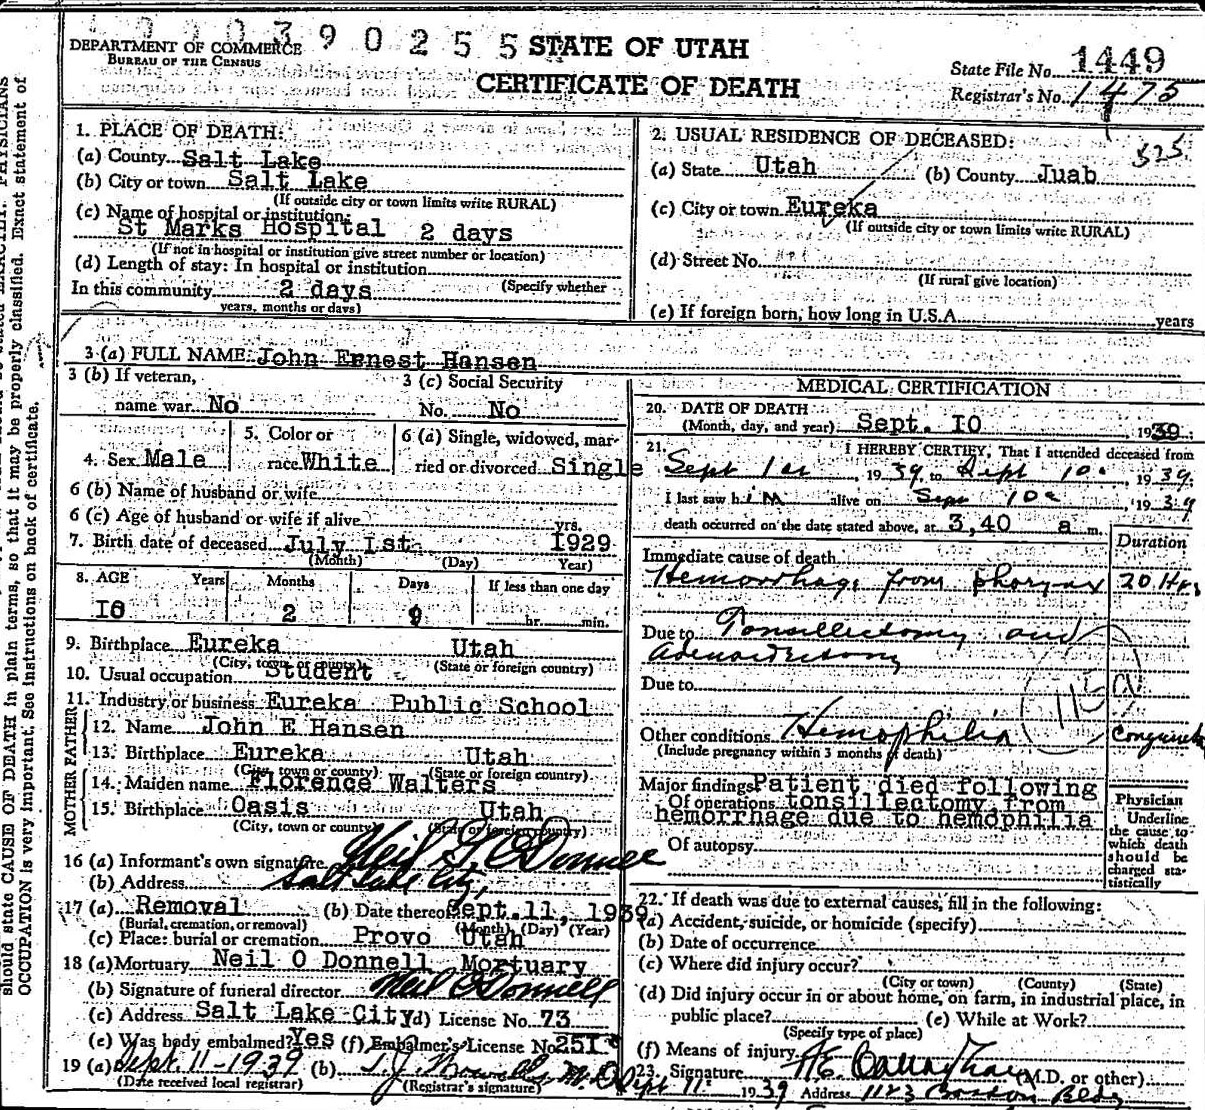 0 0 0 3 9 0 2 5 5
STATE OF UTAH
CERTIFICATE OF DEATH
DEPARTMENT OF COMMERCE
BUREAU OF THE CENSUS
State File No. 1449
Registrar's No. 1475
1. PLACE OF DEATH:
(a) County Salt Lake
(b) City or town Salt Lake
(If outside city or town limits write RURAL)
(c) Name of hospital or institution:
St Marks Hospital 2 days
(If not in hospital or institution give street number or location)
(d) Length of stay: In hospital or institution
(Specify whether
In this community 2 days
years, months or days)
2. USUAL RESIDENCE OF DECEASED:
325
(a) State Utah (b) County Juab
(c) City or town Eureka
(If outside city or town limits write RURAL)
(d) Street No.
(If rural give location)
(e) If foreign born, how long in U.S.A. years
3 (a) FULL NAME: John Ernest Hansen
3 (b) If veteran, name war No
3 (c) Social Security No. No
4. Sex Male
5. Color or race White
6 (a) Single, widowed, married or divorced Single
6 (b) Name of husband or wife
6 (c) Age of husband or wife if alive yrs.
7. Birth date of deceased July 1st 1929
(Month) (Day) Year)
8. AGE Years Months Days If less than one day
10 2 9 hr. min.
9. Birthplace Eureka Utah
(City, town or county) (State or foreign country)
10. Usual occupation Student
11. Industry or business Eureka Public School
FATHER
12. Name John E Hansen
13. Birthplace Eureka Utah
(City, town or county) (State or foreign country)
MOTHER
14. Maiden name Florence Walters
15. Birthplace Oasis Utah
(City, town or county) (State or foreign country)
16 (a) Informant's own signature Neil G. O'Donnell
(b) Address Salt Lake City,
17 (a) Removal (b) Date thereof Sept. 11, 1939
(Burial, cremation, or removal) (Month) (Day) (Year)
(c) Place: burial or cremation Provo Utah
18 (a) Mortuary Neil O Donnell Mortuary
(b) Signature of funeral director Neil O'Donnell
(c) Address Salt Lake City (d) License No. 73
(e) Was body embalmed? Yes (f) Embalmer's License No. 251
19 (a) Sept. 11-1939 (b) M.D.
(Date received local registrar) (Registrar's signature)
MEDICAL CERTIFICATION
20. DATE OF DEATH
(Month, day, and year) Sept. 10 1939
21. I HEREBY CERTIFY, That I attended deceased from
Sept 1st 1939, to Sept 10, 1939.
I last saw him alive on Sept 10, 1939
death occurred on the date stated above, at 3,40 a m.
Duration
Immediate cause of death
Hemorrhage from pharynx 20 Hrs
Due to Tonsillectomy and
adenoidectomy
Due to
115 a
Other conditions Hemophilia
(Include pregnancy within 3 months of death)
Major findings Patient died following
Of operations tonsillectomy from
hemorrhage due to hemophilia
Of autopsy
Physician
Underline
the cause to
which death
should be
charged sta-
tistically
22. If death was due to external causes, fill in the following:
(a) Accident, suicide, or homicide (specify)
(b) Date of occurrence
(c) Where did injury occur?
(City or town) (County) (State)
(d) Did injury occur in or about home, on farm, in industrial place, in
public place? (e) While at Work?
(Specify type of place)
(f) Means of injury
23. Signature H.E. Callaghan (M.D. or other)
Sept 11 1939 Address 1123 Boston Bldg
should state CAUSE OF DEATH in plain terms, so that it may be properly classified. Exact statement of
OCCUPATION is very important. See instructions on back of certificate.